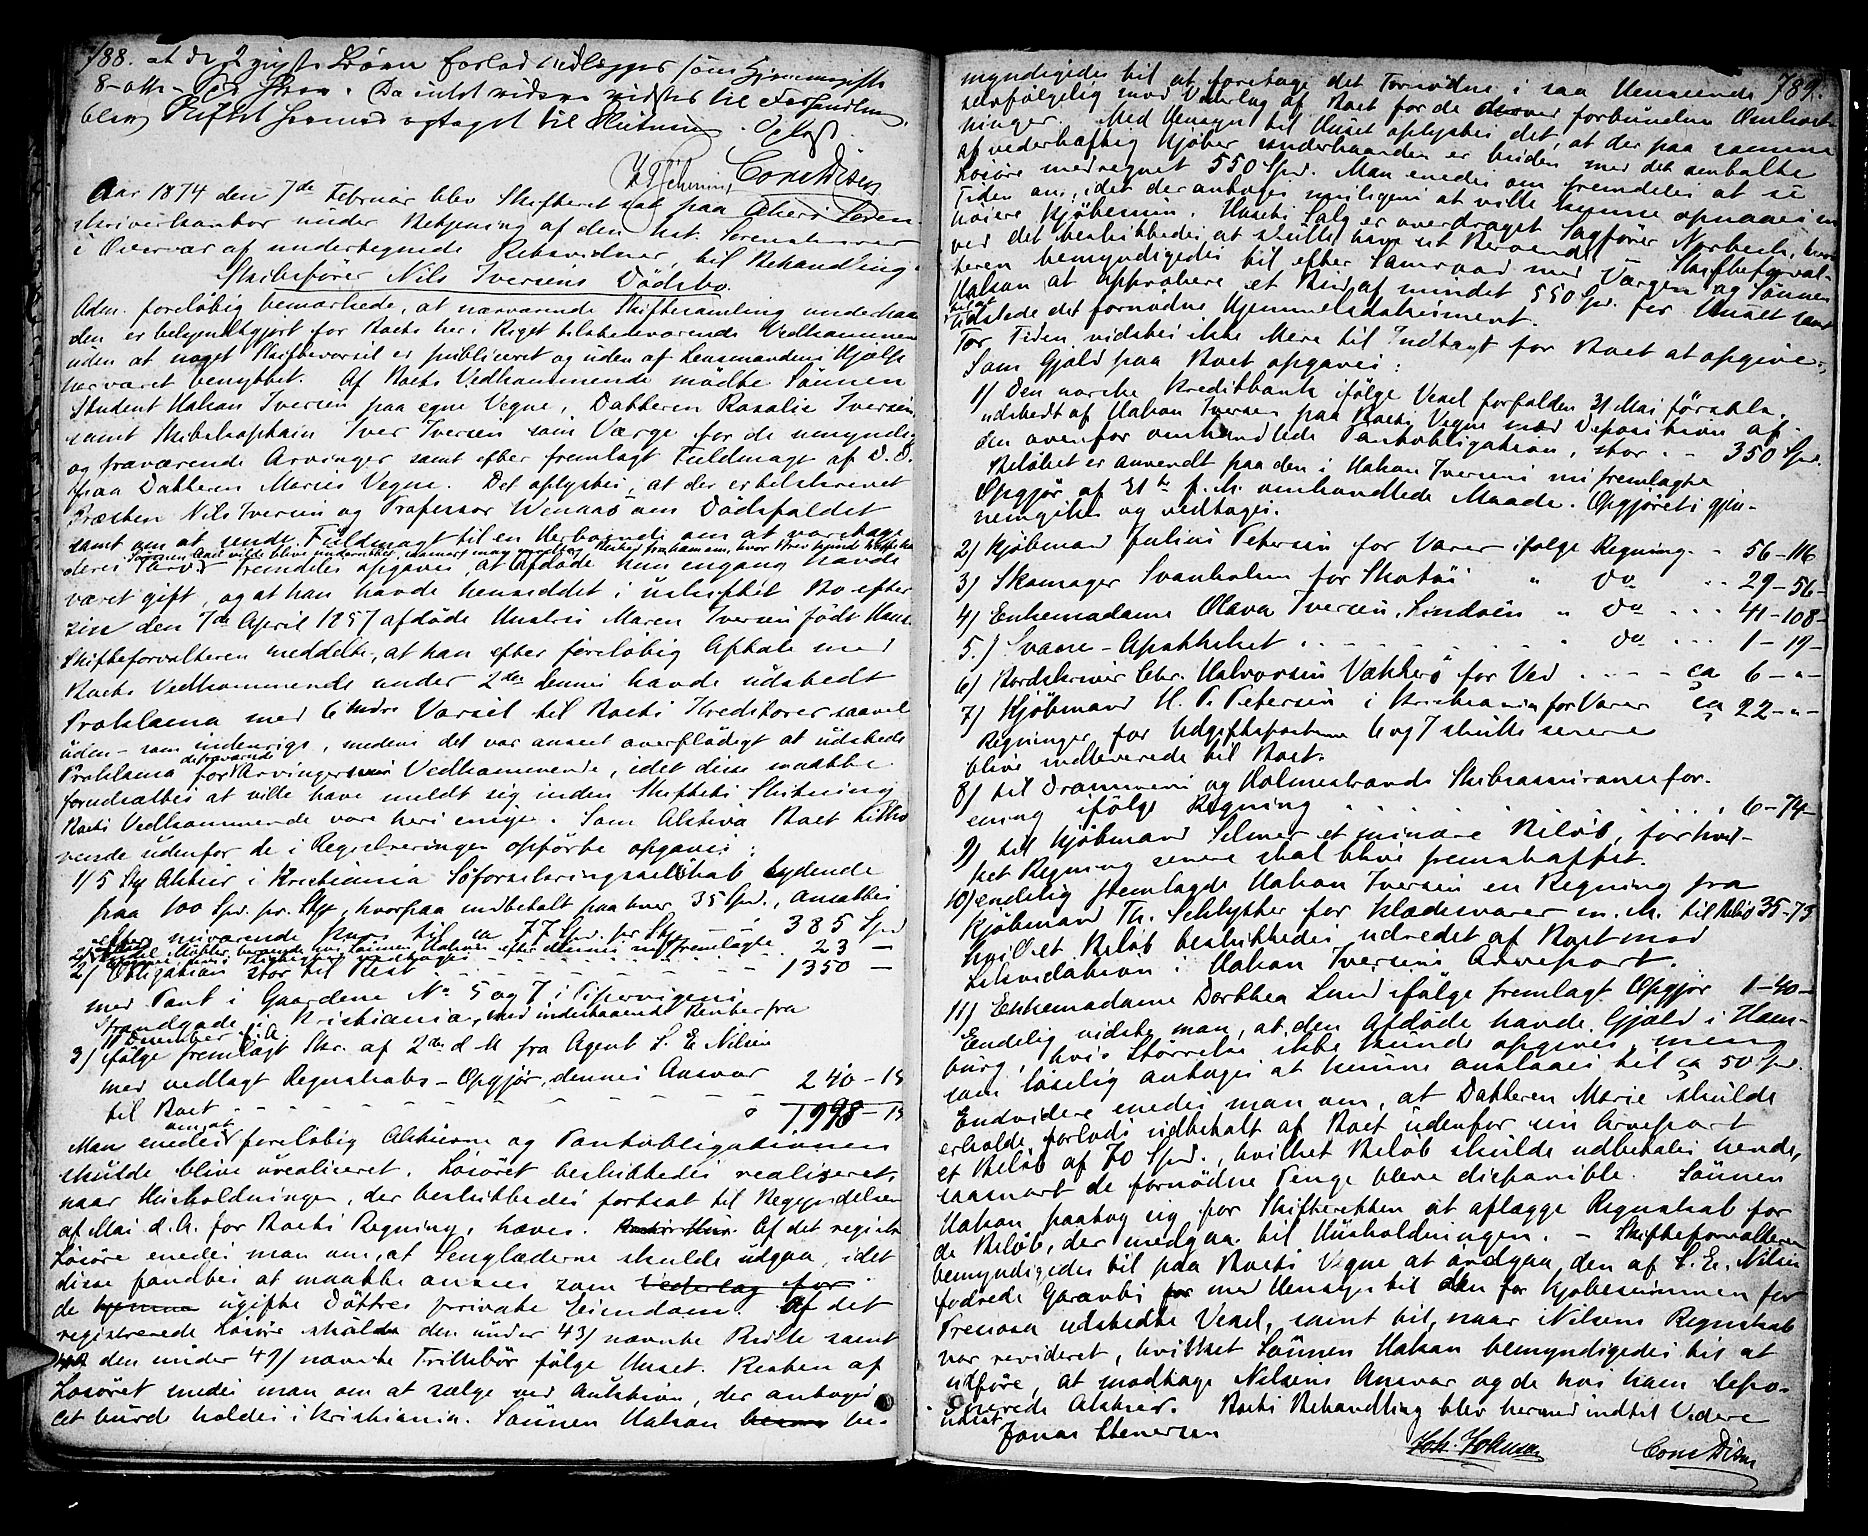 788. at de 2 yngste Børn forlod indlægges som Hjemmegifte
8 - otte - Spd. hver. Da intet videre vidstes til Forhandling,
blev Skiftet hermed optaget til Slutning. Oplæst.
Cons Disen
Aar 1874 den 7de Februar blev Skifteret sat paa Akers Soren-
skriverkontor under Betjening af den kst. Sorenskriver
i Overvær af undertegnede Retsvidner, til Behandling
Skibsfører Nils Iversens Dødsbo.
Adm. foreløbig bemærkede, at nærværende Skiftesamling underhaan-
den er bekjentgjort for Boets her i Riget tilstedeværende Vedkommende
uden at noget Skiftevarsel er publiceret og uden at Lensmandens Hjælp
har været benyttet. Af Boets Vedkommende mødte Sønnen
Student Hakon Iversen paa egne Vegne, Datteren Rosalie Iversen,
samt Skibskaptain Iver Iversen som Værge for de umyndige
og fraværende Arvinger samt efter fremlagt Fuldmagt af D. D.
paa Datteren Maries Vegne. Det oplystes, at der er tilskrevet
Præsten Nils Iversen og Professor Winaas om Dødsfaldet
samt om at sende Fuldmagt til en Herboende om at varetage
deres Tarv. Fremdeles opgaves, at Afdøde kun engang havde
været gift, og at han havde hensiddet i uskiftet Bo efter
sin den 7de April 1857 afdøde Hustru Maren Iversen født Hans.
Skifteforvalteren meddelte, at han efter foreløbig Aftale med
Boets Vedkommende under 2den dennes havde udstedt
Proklama med 6 Mdrs Varsel til Boets Kreditorer saavel
uden- som indenrigs, medens det var anseet overflødigt at udstede
Proklama for de fraværende Arvingers Vedkommende, idet disse maatte
forudsættes at ville have meldt sig inden Skiftets Slutning
Boets Vedkommende vare heri enige. Som Aktiva Boet tilho-
rende udenfor de i Registreringen opførte opgaves:
1/ 5 Stk Aktier i Kristiania Søforsikringsselskab lydende
paa 100 Spd. pr. Stk, hvorpaa indbetalt paa hver 35 Spd., ansattes
efter nuværende Kurs til ca 77 Spd. pr Stk - - 385 Spd
23 -
2/ Obligation stor til Rest - - - 1350 -
med Pant i Gaardene No 5 og 7 i Pipervigens
Strandgade i Kristiania, med indestaaende Renter fra
11 December f. A.
3/ ifølge fremlagt Skr. af 2den d. M. fra Agent L. E. Nilsen
med vedlagt Regnskabs-Opgjør, dennes Ansvar
til Boet - - - 240 - 15
1,998 - 15
Man enedes om at foreløbig Aktierne og Pantobligationen
skulde blive urealiseret. Løsøret besluttedes realiseret,
naar Husholdningen, der besluttedes fortsat til Begyndelsen
af Mai d. A. for Boets Regning, hæves. Af det registr.
Løsøre enedes man om, at Sengklæderne skulde udgaa, idet
disse fandtes at maatte ansees som
de ugifte Døttres private Eiendom. Af det
registrerede Løsøre skulde den under 43/ nævnte Rulle samt
den under 49/ nævnte Trillebør følge Huset. Resten af
Løsøret enedes man om at sælge ved Auktion, der antoges
at burde holdes i Kristiania. Sønnen Hakon be-
789.
myndigedes til at foretage det Fornødne i saa Henseende
selvfølgelig mod Vederlag af Boet for de forbundne Omkost-
ninger. Med Hensyn til Huset oplystes det, at der paa samme
af vederhæftig Kjøber underhaanden er buden med det omtalte
Løsøre medregnet 550 Spd. Man enedes om fremdeles at se
Tiden an, idet der antoges muligens at ville kunne opnaaes en
høiere Kjøbesum. Husets Salg er overdraget Sagfører Norbech, hvor-
ved det besluttedes at skulle have sit Beroende. Skifteforval-
teren bemyndigedes til efter Samraad med Værgen og Sønnen
Hakon at approbere et Bud af mindst 550 Spd. for Huset samt
udstede det fornødne Hjemmelsdokument.
For Tiden vidstes ikke Mere til Indtægt for Boet at opgive.
Som Gjæld paa Boet opgaves:
1/ Den norske Kreditbank ifølge Vexel forfalden 31 Mai førstkl.
udstedt af Hakon Iversen paa Boets Vegne mod Deposition af
den ovenfor omhandlede Pantobligation, stor - - 350 Spd.
Beløbet er anvendt paa den i Hakon Iversens nu fremlagte
Opgjør af 31te f. M. omhandlede Maade. Opgjøret gjen-
nemgikes og vedtoges.
2/ Kjøbmand Julius Petersen for Varer ifølge Regning - 56 - 116
3/ Skomager Svanholm for Skotøi " Do - - 29 - 56 -
4/ Enkemadame Olava Iversen, Sindsen " Do - - - 41 - 108 -
5./ Svane-Apotheket - - - " Do - - - 1 - 19 -
6/ Bordskriver Chr. Halvorsen Vækkerø for Ved - - - ca 6 - " -
7/ Kjøbmand H. P. Petersen i Kristiania for Varer ca 22 - " -
Regninger for Udgiftsposterne 6 og 7 skulle senere
blive indleverede til Boet.
8/ til Drammens og Holmestrands Skibsassuranceefor-
ening ifølge Regning - - - 6 - 74 -
9/ til Kjøbmand Selmer et mindre Beløb, for hvil-
ket Regning senere skal blive fremskaffet.
10/ endelig fremlagde Hakon Iversen en Regning fra
Kjøbmand Th. Schlytter for Klædesvarer m. M. til Beløb 35 - 73
hvilket Beløb besluttedes udredet af Boet mod
Likvidation i Hakon Iversens Arvepart.
11/ Enkemadame Dorthea Lund ifølge fremlagt Opgjør 1 - 40 -
Endelig vidste man, at den Afdøde havde Gjæld i Ham-
burg, hvis Størrelse ikke kunde opgives, men
som løselig antoges at kunne anslaaes til ca 50 Spd.
Endvidere enedes man om, at Datteren Marie skulde
erholde forlods udbetalt af Boet udenfor sin Arvepart
et Beløb af 70 Spd., hvilket Beløb skulde udbetales hende,
saasnart de fornødne Penge bleve disponible. Sønnen
Hakon paatog sig for Skifteretten at aflægge Regnskab for
de Beløb, der medgaa til Husholdningen. - Skifteforvalteren
bemyndigedes til paa Boets Vegne at indgaa den af L. E. Nilsen
fodrede Garanti med Hensyn til den for Kjøbesummen for
udstedte Vexel, samt til, naar Nilsens Regnskab
var revideret, hvilket Sønnen Hakon bemyndigedes til at
udføre, at modtage Nilsens Ansvar og de hos ham depo-
nerede Aktier. Boets Behandling blev hermed indtil Videre
udsat.
Jonas Stenersen
Joh. Johnsen
Cons Disen